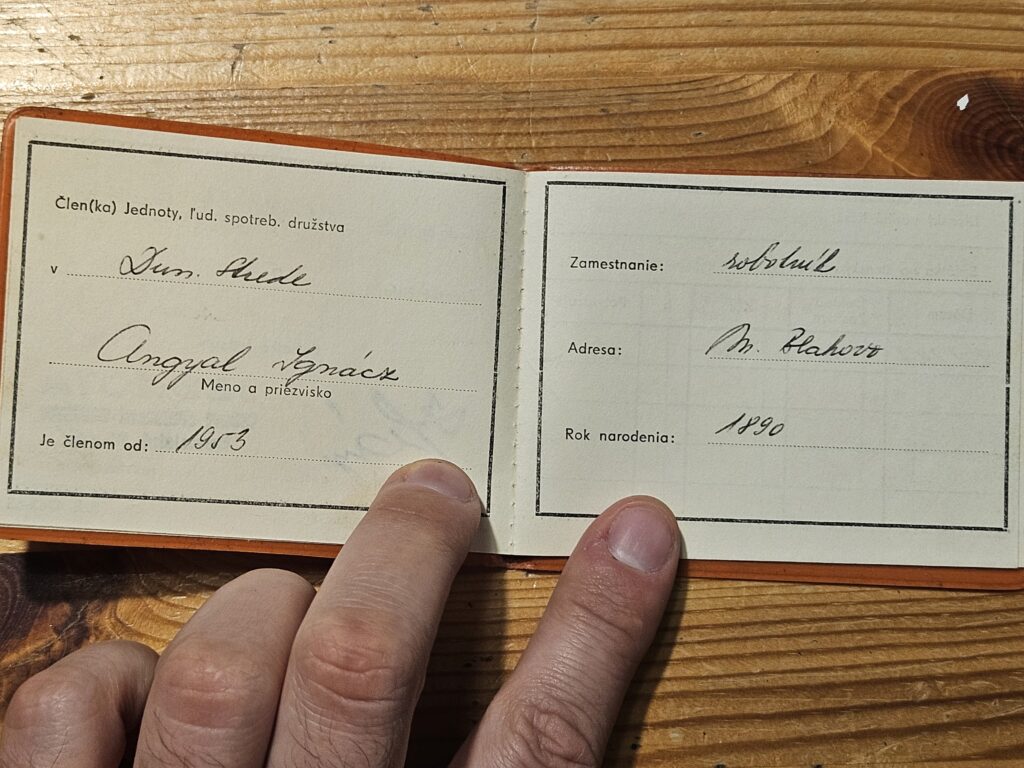 Člen(ka) Jednoty, ľud. spotreb. družstva
v Dun. Strede
Angyal Ignácz
Meno a priezvisko
Je členom od: 1953
Zamestnanie: robotník
Adresa: M. Blahovo
Rok narodenia: 1890